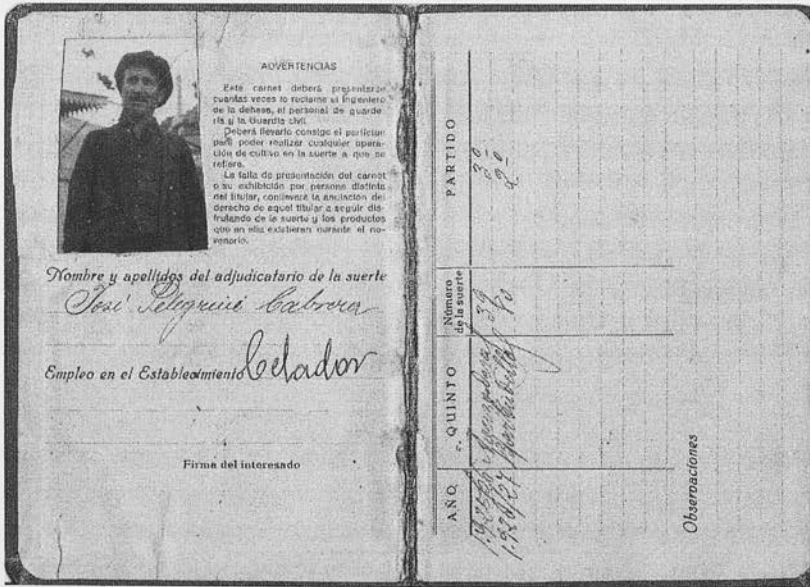 ADVERTENCIAS
Este carnet deberá presentarse
cuantas veces lo reclame el Ingeniero
de la dehesa, el personal de guarde-
ría y la Guardia civil.
Deberá llevarlo consigo el partícipe
para poder realizar cualquier opera-
ción de cultivo en la suerte a que se
refiere.
La falta de presentación del carnet
o su exhibición por persona distinta
del titular, conllevará la anulación del
derecho de aquel titular a seguir dis-
frutando de la suerte y los productos
que en ella existieran durante el no-
venario.
Nombre y apellidos del adjudicatario de la suerte
José Pelegrini Cabrera
Empleo en el Establecimiento Celador
Firma del interesado
AÑO QUINTO Número de la suerte PARTIDO
39 3º
1.926/27 2º
Observaciones